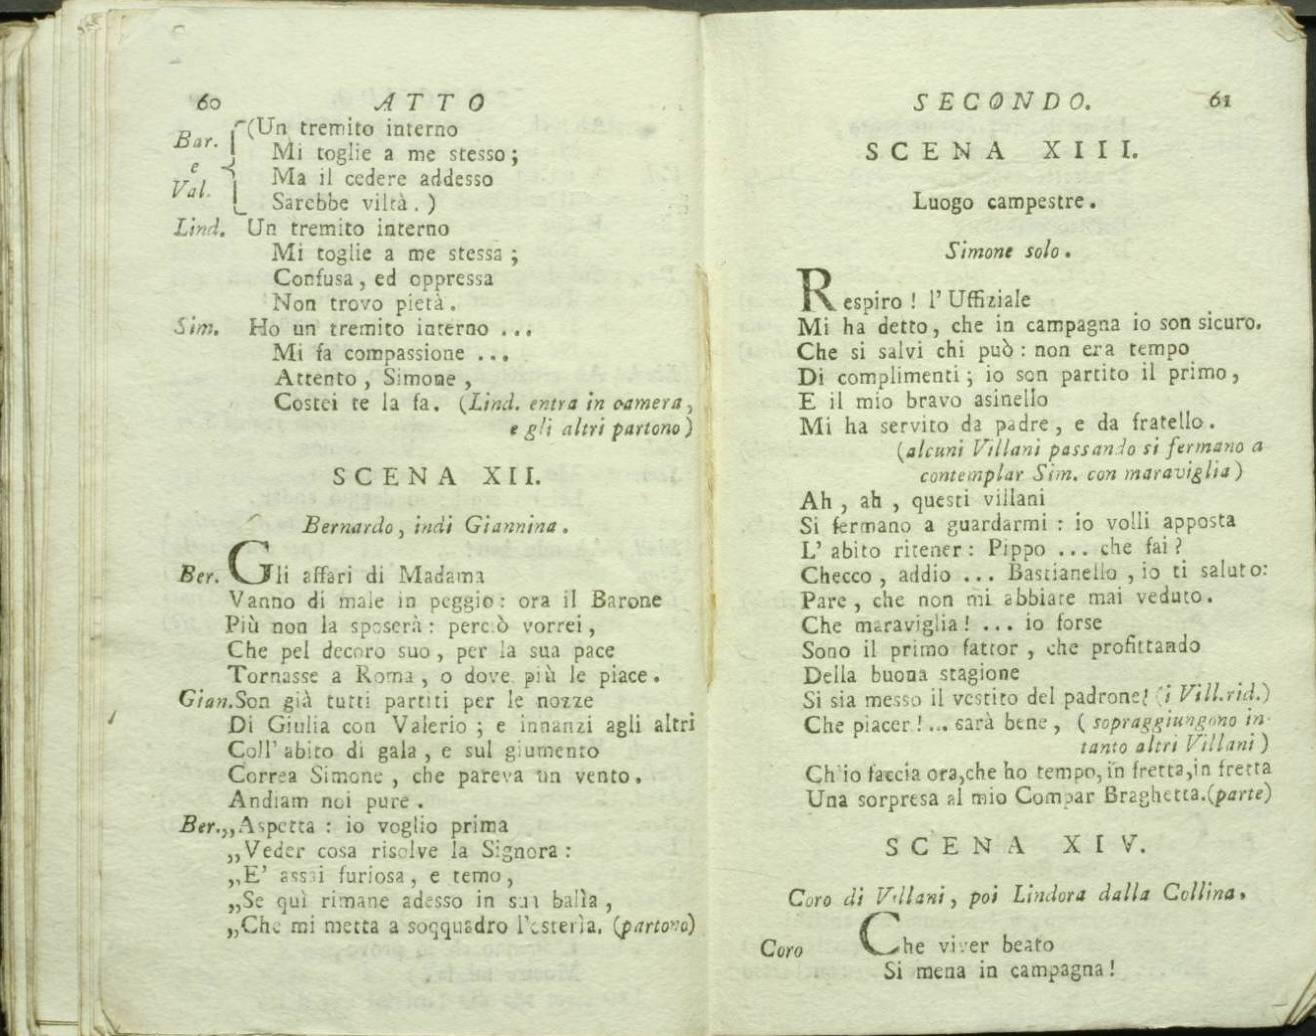 60 ATTO
Bar. (Un tremito interno
Mi toglie a me stesso;
e
Val. Ma il cedere addesso
Sarebbe viltà.)
Lind. Un tremito interno
Mi toglie a me stessa;
Confusa, ed oppressa
Non trovo pietà.
Sim. Ho un tremito interno ...
Mi fa compassione ...
Attento, Simone,
Costei te la fa. (Lind. entra in camera,
e gli altri partono)
SCENA XII.
Bernardo, indi Giannina.
Ber. Gli affari di Madama
Vanno di male in peggio: ora il Barone
Più non la sposerà: perciò vorrei,
Che pel decoro suo, per la sua pace
Tornasse a Roma, o dove più le piace.
Gian. Son già tutti partiti per le nozze
Di Giulia con Valerio; e innanzi agli altri
Coll' abito di gala, e sul giumento
Correa Simone, che pareva un vento.
Andiam noi pure.
Ber. ,,Aspetta: io voglio prima
,,Veder cosa risolve la Signora:
,,E' assai furiosa, e temo,
,,Se quì rimane adesso in sua balìa,
,,Che mi metta a soqquadro l'esterìa. (partono)
SECONDO. 61
SCENA XIII.
Luogo campestre.
Simone solo.
Respiro! l' Uffiziale
Mi ha detto, che in campagna io son sicuro.
Che si salvi chi può: non era tempo
Di complimenti; io son partito il primo,
E il mio bravo asinello
Mi ha servito da padre, e da fratello.
(alcuni Villani passando si fermano a
contemplar Sim. con maraviglia)
Ah, ah, questi villani
Si fermano a guardarmi: io volli apposta
L' abito ritener: Pippo ... che fai?
Checco, addio ... Bastianello, io ti saluto:
Pare, che non mi abbiate mai veduto.
Che maraviglia! ... io forse
Sono il primo fattor, che profittando
Della buona stagione
Si sia messo il vestito del padrone? (i Vill. rid.)
Che piacer!... sarà bene, (sopraggiungono in-
tanto altri Villani)
Ch'io faccia ora, che ho tempo, in fretta, in fretta
Una sorpresa al mio Compar Braghetta. (parte)
SCENA XIV.
Coro di Villani, poi Lindora dalla Collina.
Coro Che viver beato
Si mena in campagna!